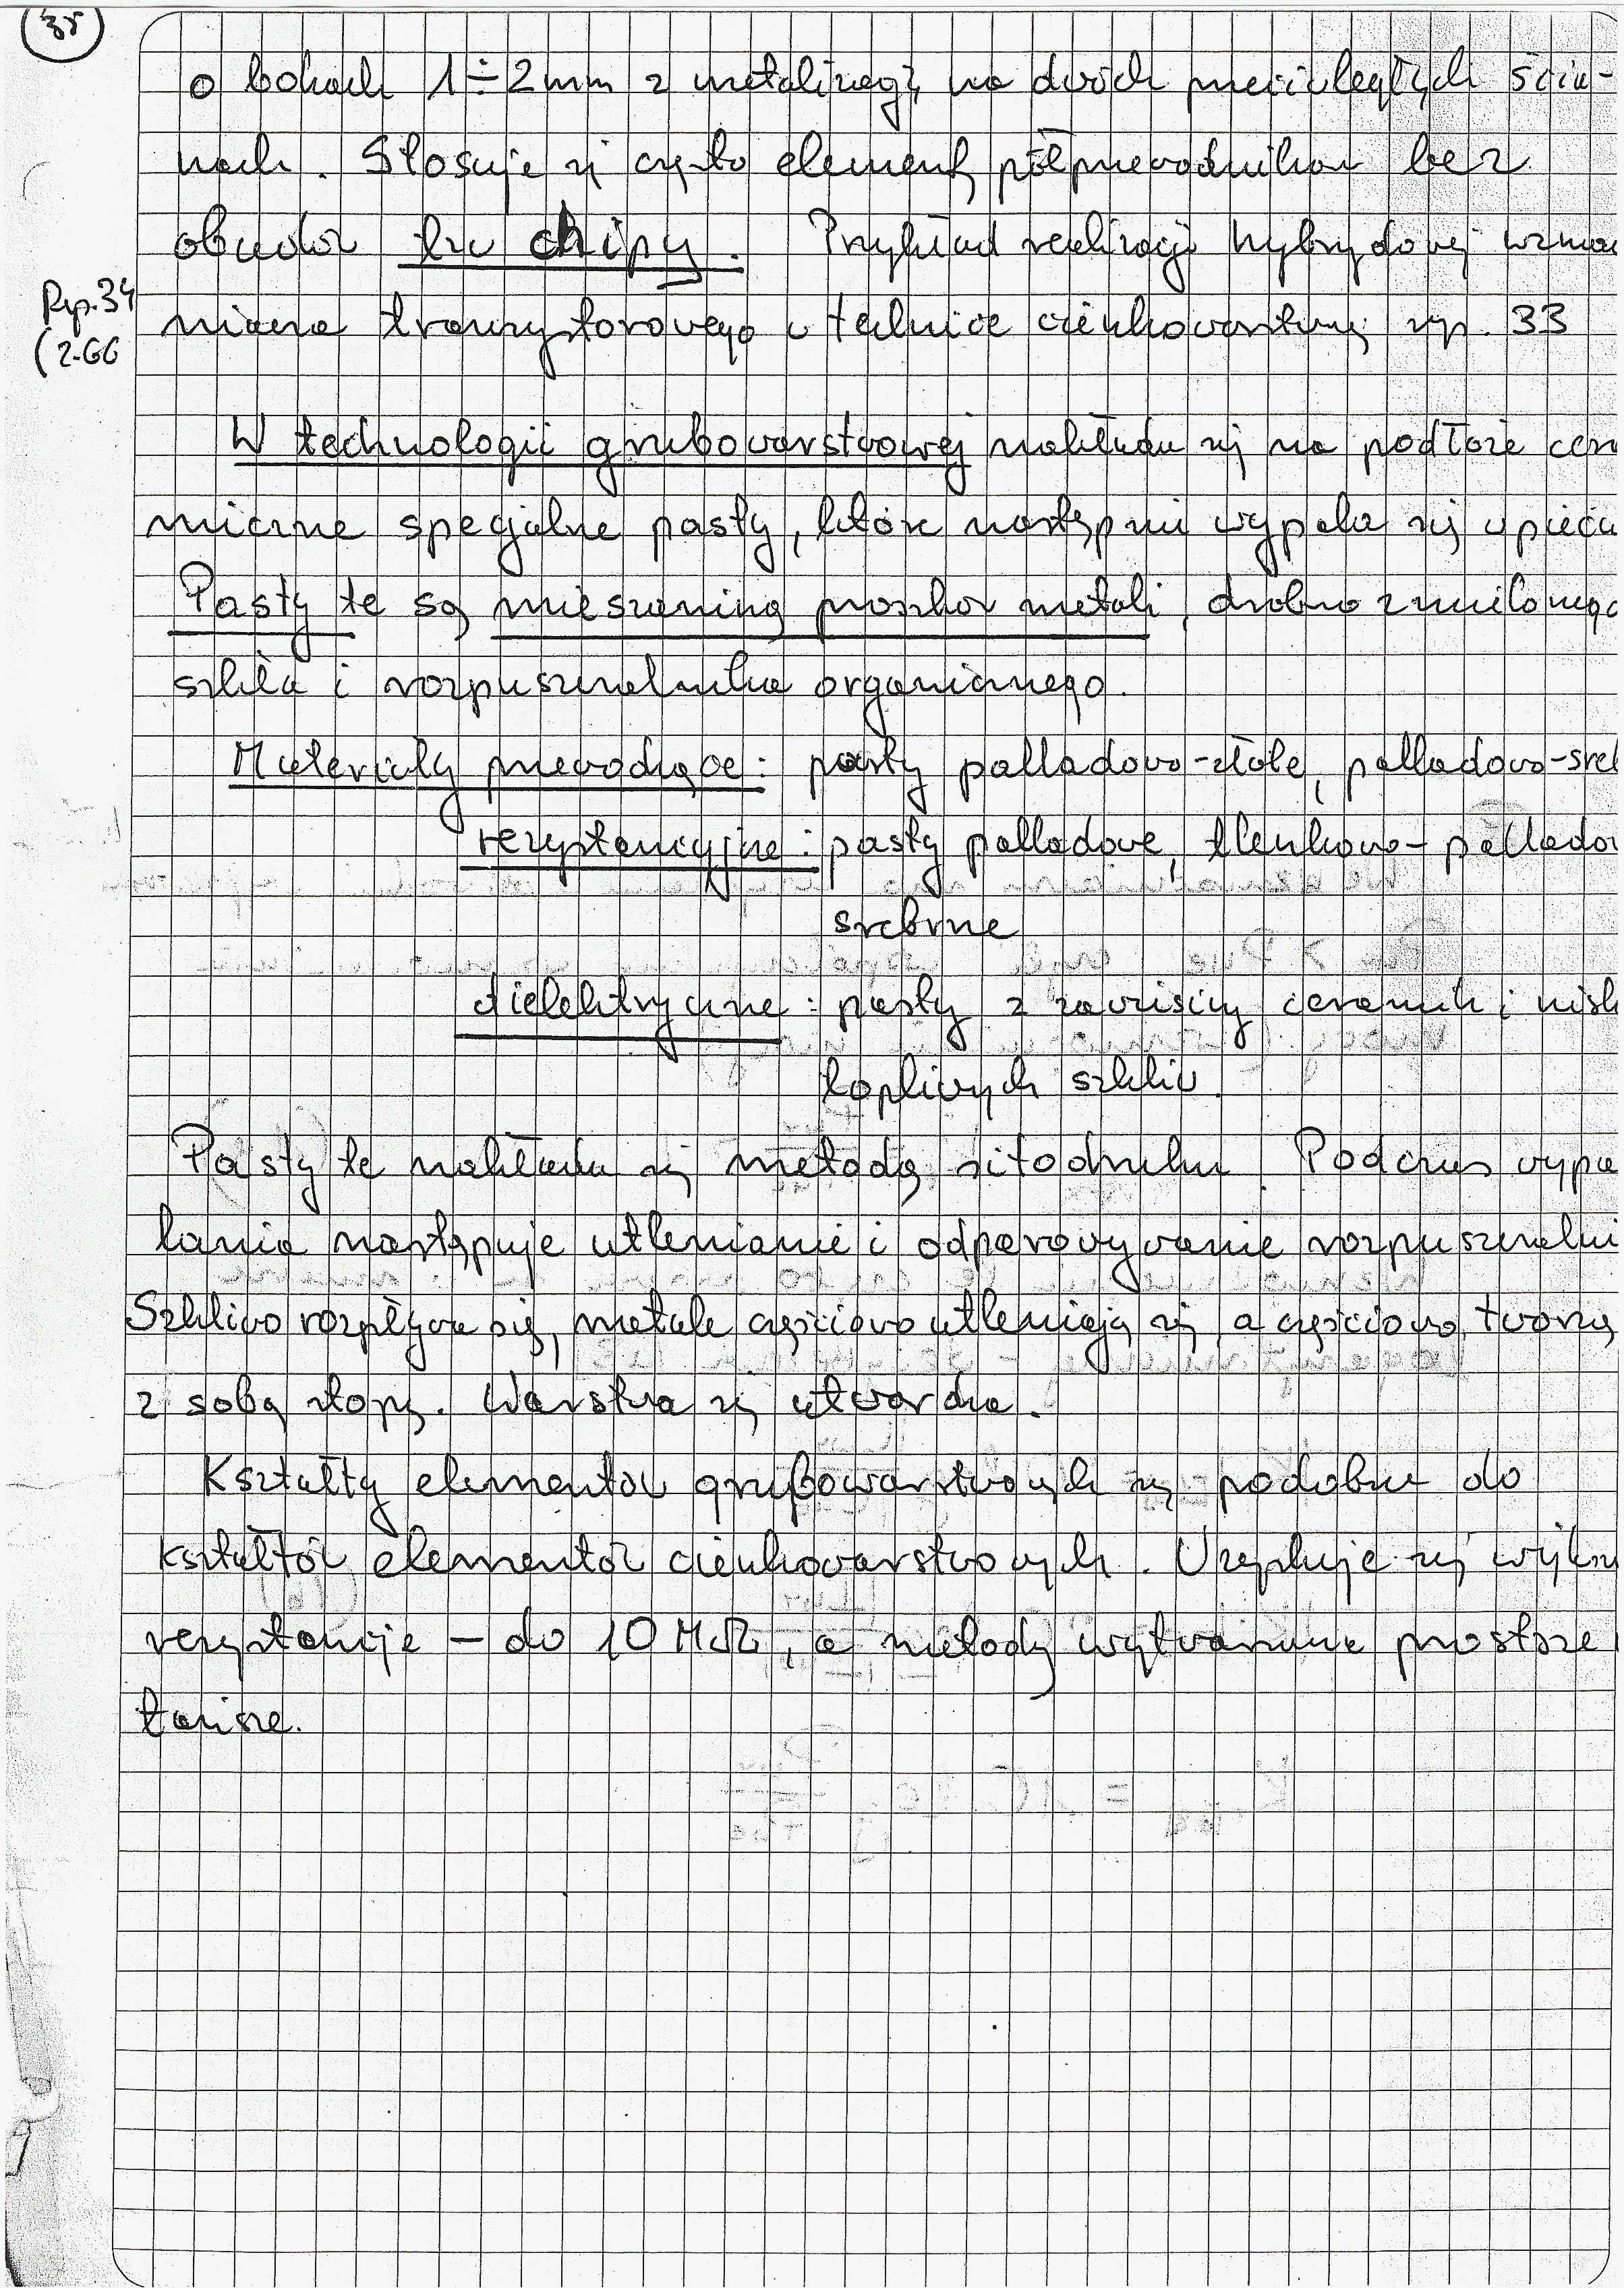 35
o bokach 1÷2mm z metalizacją na dwóch przeciwległych ścia-
nach. Stosuje się często elementy półprzewodnikow bez
obudów tzw chipy. Przykład realizacji hybrydowej wzmac
Rys.34
niacza tranzystorowego w technice cienkowarstwowej rys. 33
(2.66
W technologii grubowarstwowej nakłada się na podłoże cera
miczne specjalne pasty, które następnie wypala się w piecu
Pasty te są mieszaniną proszków metali, drobno zmielonego
szkła i rozpuszczalnika organicznego.
Materiały przewodzące: pasty palladowo-złote, palladowo-sreb
rezystancyjne: pasty palladowe, tlenkowo-palladow
srebrne
dielektryczne: pasty z zawiesiny ceramik i nisk
topliwych szkliw.
Pasty te nakłada się metodą sitodruku. Podczas wypa
lania następuje utlenianie i odparowywanie rozpuszczalni
Szkliwo rozpływa się, metale częściowo utleniają się, a częściowo tworzą
z sobą stopy. Warstwa się utwardza.
Kształty elementów grubowarstwowych są podobne do
kształtów elementów cienkowarstwowych. Uzyskuje się większ
rezystancje – do 10 MΩ, a metody wytwarzania prostsze i
tańsze.